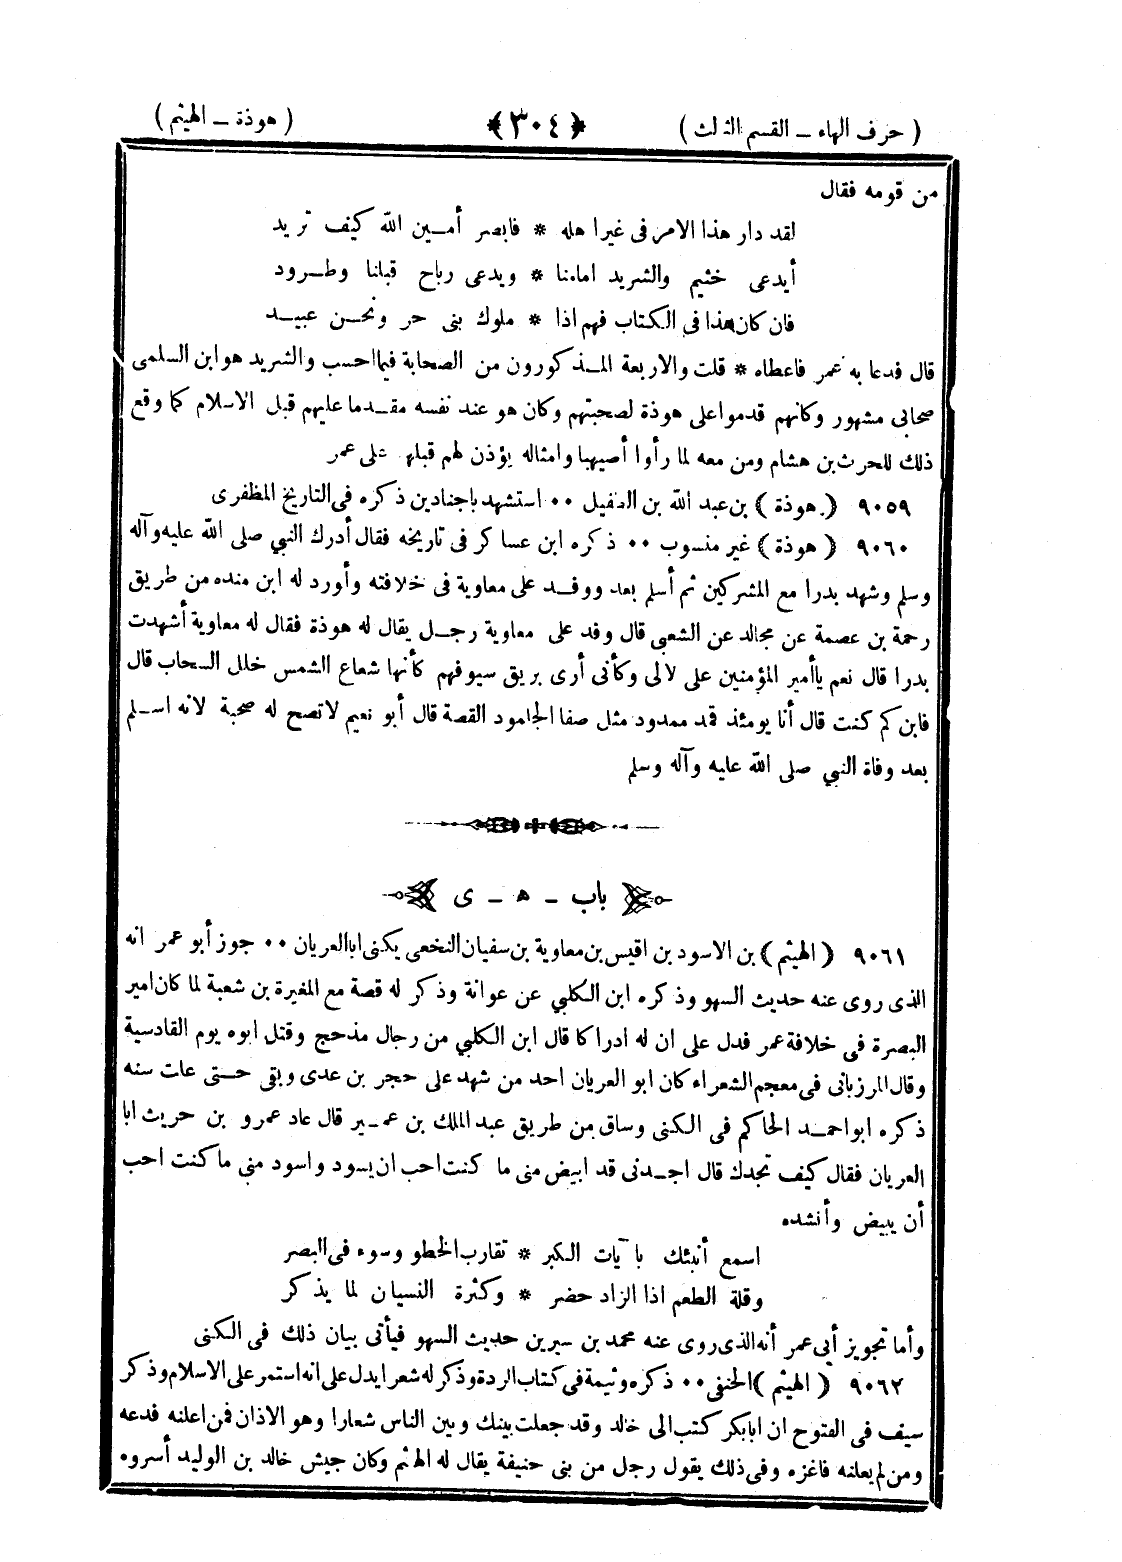 ( حرف الهاء ــ القسم الثالث ) ﴿ ٣٠٤ ﴾ ( هوذة ــ الهيثم )
من قومه فقال
لقد دار هذا الامر فى غير اهله * فابصر أمين الله كيف تريد
أيدعى خثيم والشريد امامنا * ويدعى رباح قبلنا وطرود
فان كان هذا فى الكتاب فهم اذا * ملوك بنى حر ونحن عبيد
قال فدعا به عمر فاعطاه * قلت والاربعة المذكورون من الصحابة فيما احسب والشريد هو ابن السلمى
صحابى مشهور وكانهم قدموا على هوذة لصحبتهم وكان هو عند نفسه مقدما عليهم قبل الاسلام كما وقع
ذلك للحرث بن هشام ومن معه لما رأوا أصيهبا وامثاله يؤذن لهم قبلهم على عمر
٩٠٥٩ ( هوذة ) بن عبد الله بن الطفيل ٠٠ استشهد باجنادين ذكره فى التاريخ المظفرى
٩٠٦٠ ( هوذة ) غير منسوب ٠٠ ذكره ابن عساكر فى تاريخه فقال أدرك النبي صلى الله عليه وآله
وسلم وشهد بدرا مع المشركين ثم أسلم بعد ووفد على معاوية فى خلافته وأورد له ابن منده من طريق
رحمة بن عصمة عن مجالد عن الشعبى قال وفد على معاوية رجل يقال له هوذة فقال له معاوية أشهدت
بدرا قال نعم ياأمير المؤمنين على لالى وكأنى أرى بريق سيوفهم كأنها شعاع الشمس خلل السحاب قال
فابن كم كنت قال أنا يومئذ قمد ممدود مثل صفا الجامود القصة قال أبو نعيم لاتصح له صحبة لانه اسلم
بعد وفاة النبي صلى الله عليه وآله وسلم
باب ــ ه ــ ى
٩٠٦١ ( الهيثم ) بن الاسود بن اقيس بن معاوية بن سفيان النخعى يكنى ابا العريان ٠٠ جوز أبو عمر انه
الذى روى عنه حديث السهو وذكره ابن الكلبي عن عوانة وذكر له قصة مع المغيرة بن شعبة لما كان امير
البصرة فى خلافة عمر فدل على ان له ادراكا قال ابن الكلبي من رجال مذحج وقتل ابوه يوم القادسية
وقال المرزبانى فى معجم الشعراء كان ابو العريان احد من شهد على حجر بن عدى وبقى حتى عات سنه
ذكره ابو احمد الحاكم فى الكنى وساق من طريق عبد الملك بن عمير قال عاد عمرو بن حريث ابا
العريان فقال كيف تجدك قال اجدنى قد ابيض منى ما كنت احب ان يسود واسود منى ما كنت احب
أن يبيض وأنشده
اسمع أنبئك بآيات الكبر * تقارب الخطو وسوء فى البصر
وقلة الطعم اذا الزاد حضر * وكثرة النسيان لما يذكر
وأما تجويز أبى عمر أنه الذى روى عنه محمد بن سيرين حديث السهو فيأتى بيان ذلك فى الكنى
٩٠٦٢ ( الهيثم ) الحنفى ٠٠ ذكره وثيمة فى كتاب الردة وذكر له شعرا يدل على انه استمر على الاسلام وذكر
سيف فى الفتوح ان ابا بكر كتب الى خالد وقد جعلت بينك وبين الناس شعارا وهو الاذان فمن اعلنه فدعه
ومن لم يعلنه فاغزه وفى ذلك يقول رجل من بنى حنيفة يقال له الهيثم وكان جيش خالد بن الوليد أسروه